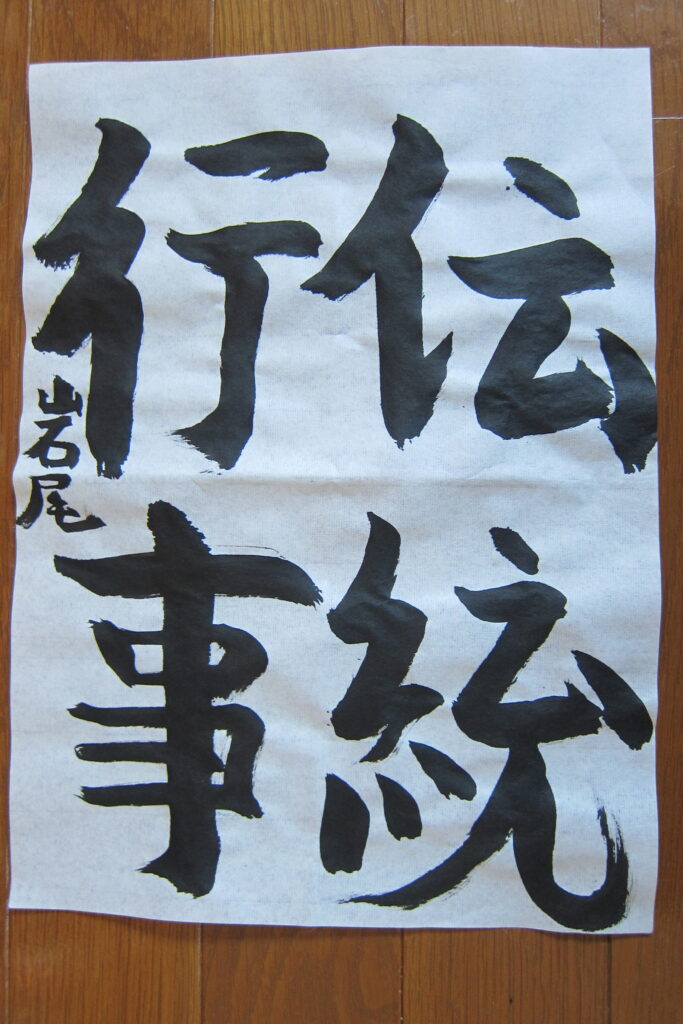 伝統
行事
岩尾